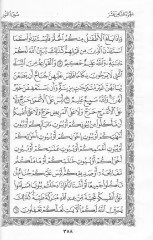 الجزء الثامن عشر
سورة النور
وَإِذَا بَلَغَ ٱلْأَطْفَٰلُ مِنكُمُ ٱلْحُلُمَ فَلْيَسْتَـْٔذِنُوا۟ كَمَا
ٱسْتَـْٔذَنَ ٱلَّذِينَ مِن قَبْلِهِمْ كَذَٰلِكَ يُبَيِّنُ ٱللَّهُ لَكُمْ
ءَايَٰتِهِۦ وَٱللَّهُ عَلِيمٌ حَكِيمٌ ٥٩ وَٱلْقَوَٰعِدُ مِنَ ٱلنِّسَآءِ
ٱلَّٰتِى لَا يَرْجُونَ نِكَاحًا فَلَيْسَ عَلَيْهِنَّ جُنَاحٌ أَن يَضَعْنَ
ثِيَابَهُنَّ غَيْرَ مُتَبَرِّجَٰتٍۭ بِزِينَةٍ وَأَن يَسْتَعْفِفْنَ خَيْرٌ
لَّهُنَّ وَٱللَّهُ سَمِيعٌ عَلِيمٌ ٦٠ لَّيْسَ عَلَى ٱلْأَعْمَىٰ حَرَجٌ
وَلَا عَلَى ٱلْأَعْرَجِ حَرَجٌ وَلَا عَلَى ٱلْمَرِيضِ حَرَجٌ وَلَا عَلَىٰٓ
أَنفُسِكُمْ أَن تَأْكُلُوا۟ مِنۢ بُيُوتِكُمْ أَوْ بُيُوتِ ءَابَآئِكُمْ
أَوْ بُيُوتِ أُمَّهَٰتِكُمْ أَوْ بُيُوتِ إِخْوَٰنِكُمْ أَوْ بُيُوتِ
أَخَوَٰتِكُمْ أَوْ بُيُوتِ أَعْمَٰمِكُمْ أَوْ بُيُوتِ عَمَّٰتِكُمْ
أَوْ بُيُوتِ أَخْوَٰلِكُمْ أَوْ بُيُوتِ خَٰلَٰتِكُمْ أَوْ مَا
مَلَكْتُم مَّفَاتِحَهُۥٓ أَوْ صَدِيقِكُمْ لَيْسَ عَلَيْكُمْ
جُنَاحٌ أَن تَأْكُلُوا۟ جَمِيعًا أَوْ أَشْتَاتًا فَإِذَا دَخَلْتُم
بُيُوتًا فَسَلِّمُوا۟ عَلَىٰٓ أَنفُسِكُمْ تَحِيَّةً مِّنْ عِندِ ٱللَّهِ مُبَٰرَكَةً
طَيِّبَةً كَذَٰلِكَ يُبَيِّنُ ٱللَّهُ لَكُمُ ٱلْءَايَٰتِ لَعَلَّكُمْ تَعْقِلُونَ ٦١
٣٥٨